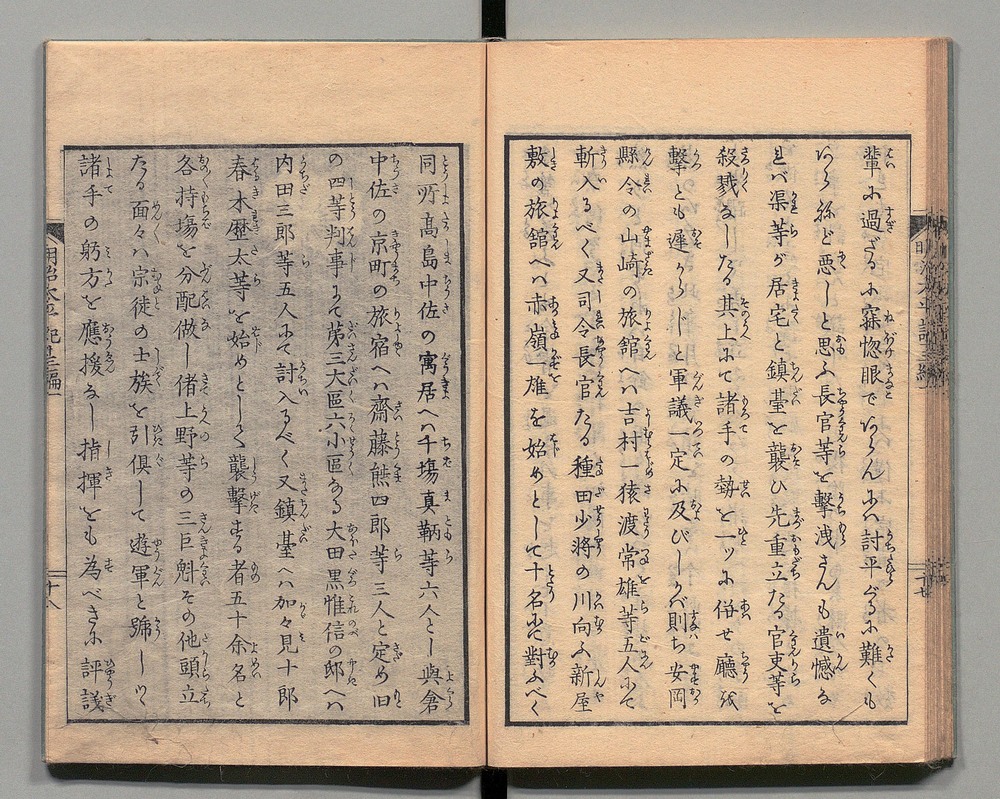 輩ふ過ざるふ寐惚眼であらんふハ討平ぐるふ難くも
あらねど悪しと思ふ長官等を撃洩さんも遺憾な
れバ渠等が居宅と鎮臺を襲ひ先重立たる官吏等を
殺戮なしたる其上ふて諸手の勢を一ッふ併せ廳を
撃とも遅からじと軍議一定ふ及びしかバ則ち安岡
縣令の山崎の旅舘へハ吉村一猿渡常雄等五人ふて
斬入るべく又司令長官たる種田少将の川向ふ新屋
敷の旅舘へハ赤嶺一雄を始めとして十名ふて對ふべく
同所髙島中佐の寓居へハ千塲真鞆等六人とし與倉
中佐の京町の旅宿へハ齋藤熊四郎等三人と定め旧
の四等判事ふて第三大區六小區なる大田黒惟信の邸へハ
内田三郎等五人ふて討入るべく又鎮臺へハ加々見十郎
春木歴太等を始めとして襲撃する者五十余名と
各持塲を分配做し偖上野等の三巨魁その他頭立
たる面々ハ宗徒の士族を引倶して遊軍と號しつゝ
諸手の躬方を應援なし指揮をも為べきふ評議
明治太平記三編一
十八